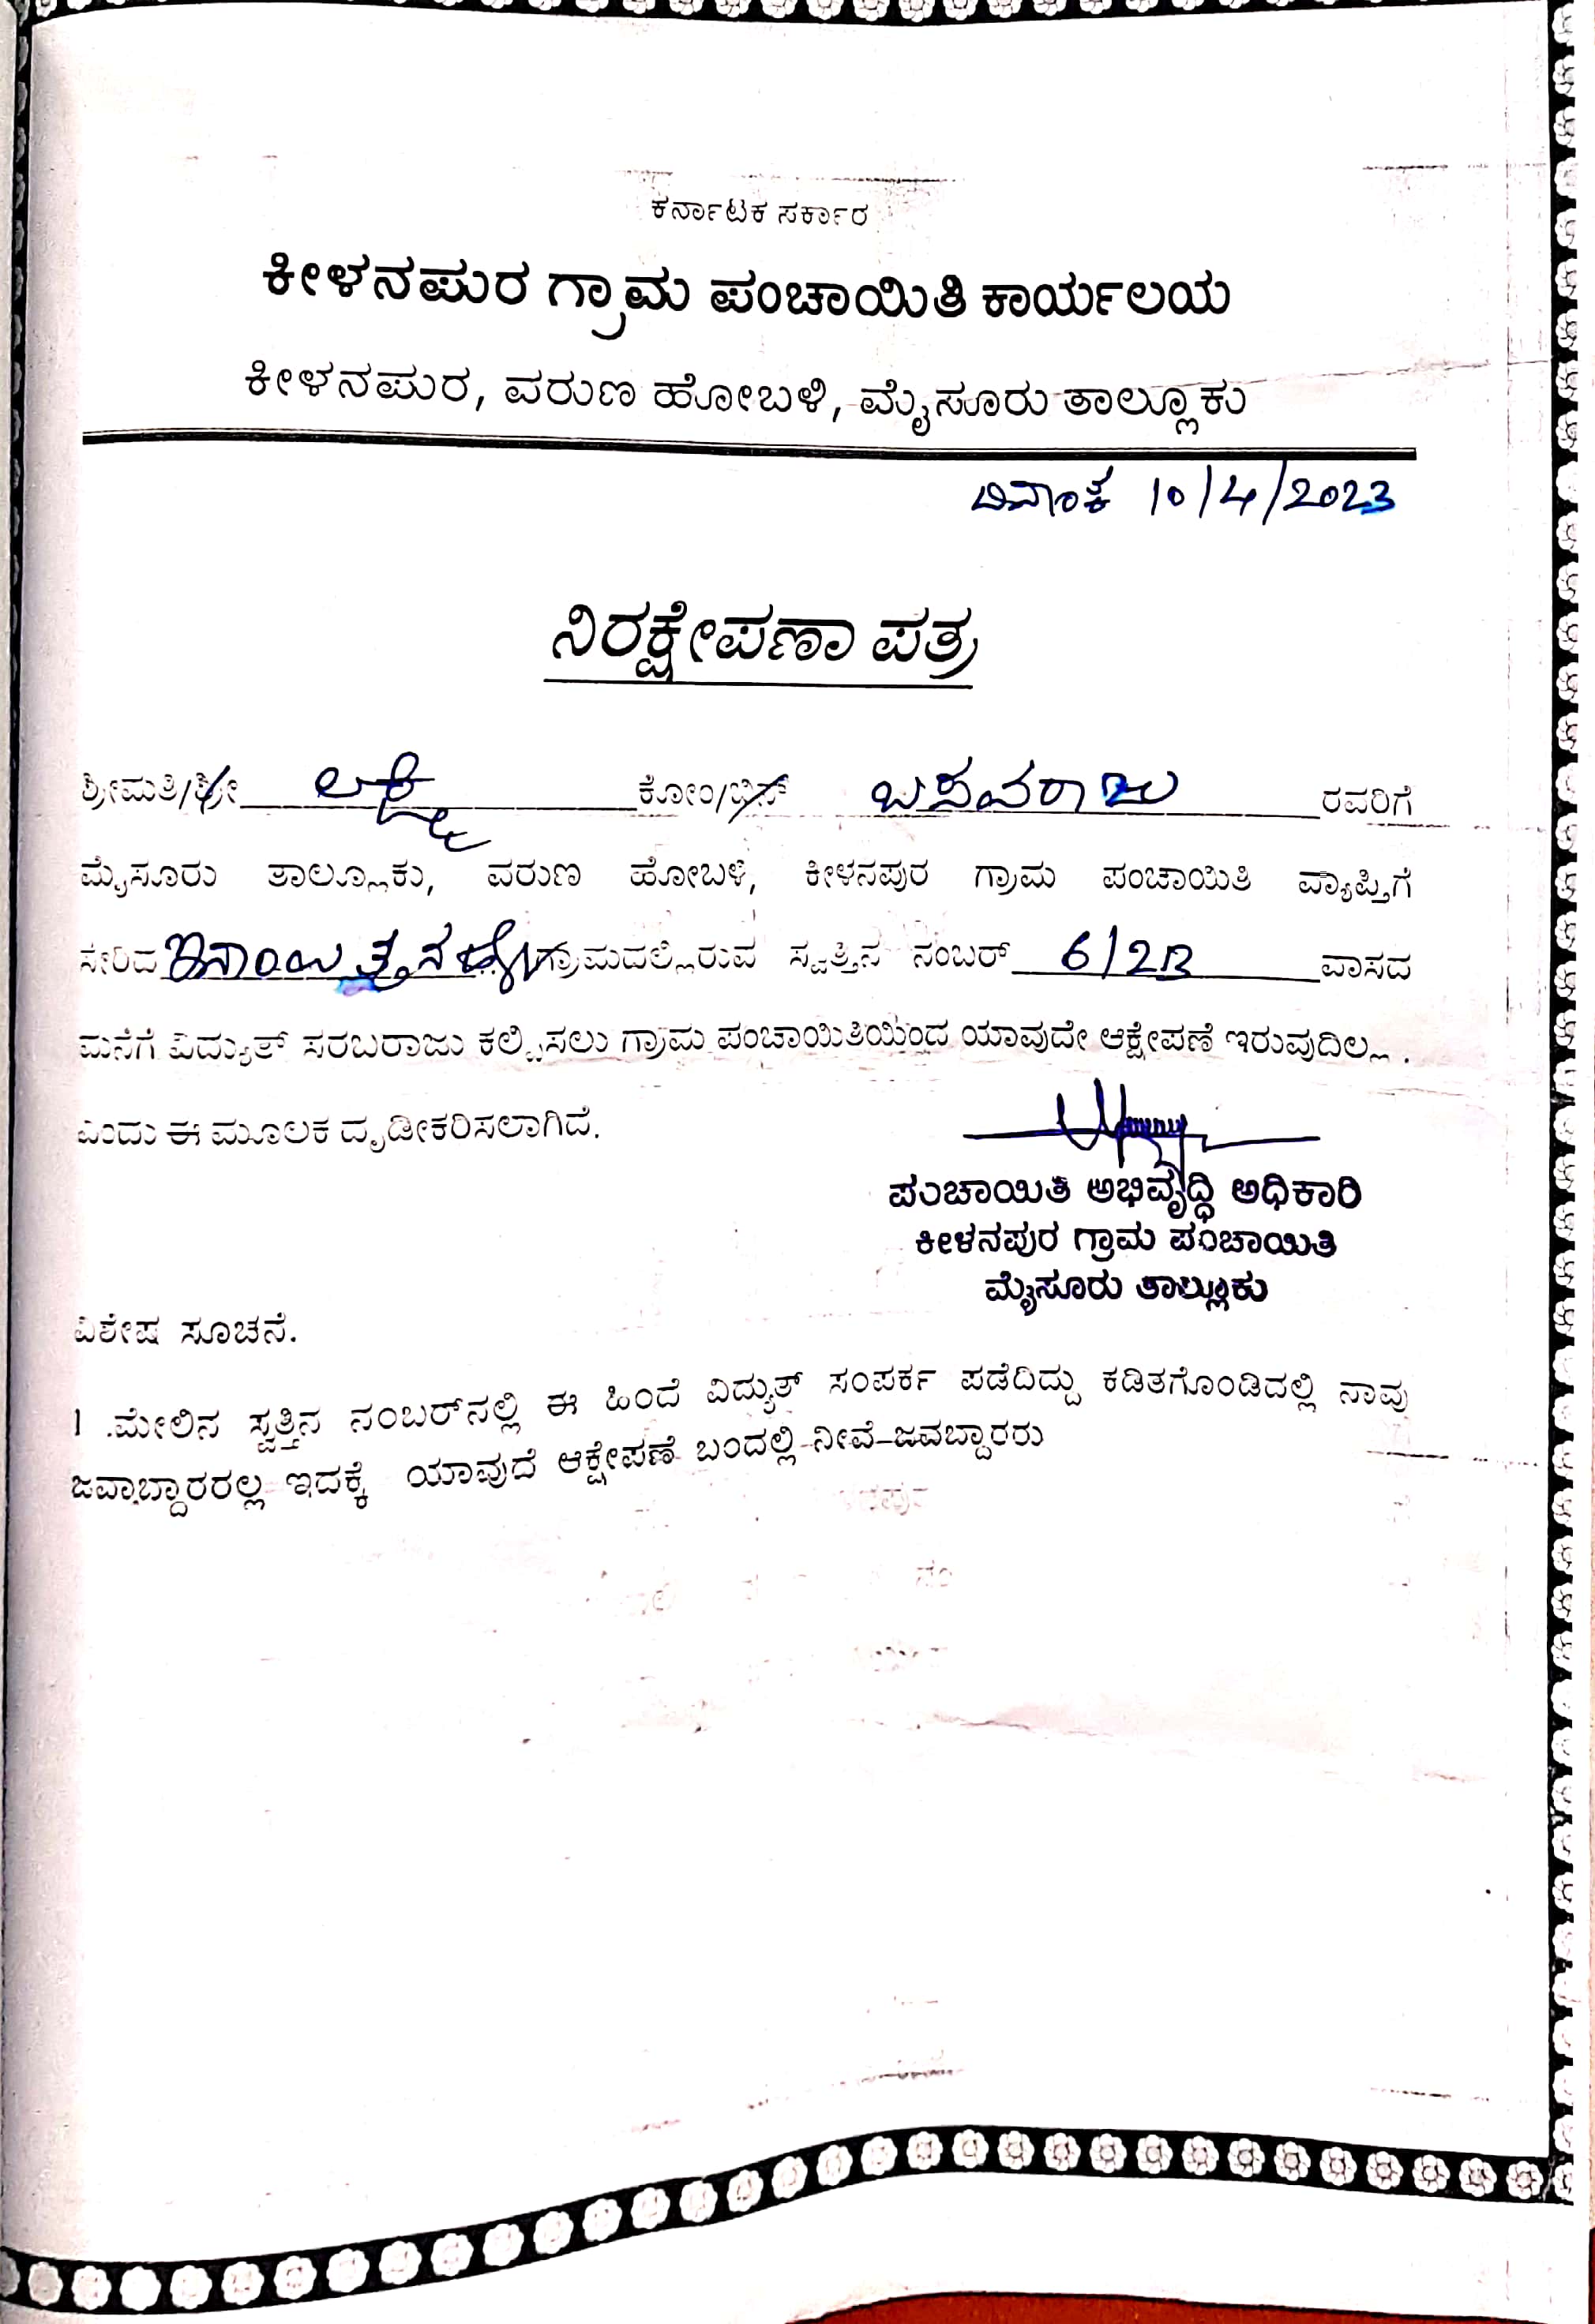 ಕರ್ನಾಟಕ ಸರ್ಕಾರ
ಕೀಳನಪುರ ಗ್ರಾಮ ಪಂಚಾಯಿತಿ ಕಾರ್ಯಲಯ
ಕೀಳನಪುರ, ವರುಣ ಹೋಬಳಿ, ಮೈಸೂರು ತಾಲ್ಲೂಕು
ದಿನಾಂಕ 10/4/2023
ನಿರಕ್ಷೇಪಣಾ ಪತ್ರ
ಶ್ರೀಮತಿ/ಶ್ರೀ ಲಕ್ಷ್ಮೀ ಕೋಂ/ಬಿನ್ ಬಸವರಾಜು ರವರಿಗೆ
ಮೈಸೂರು ತಾಲ್ಲೂಕು, ವರುಣ ಹೋಬಳಿ, ಕೀಳನಪುರ ಗ್ರಾಮ ಪಂಚಾಯಿತಿ ವ್ಯಾಪ್ತಿಗೆ
ಸೇರಿದ ಗ್ರಾಮದಲ್ಲಿರುವ ಸ್ವತ್ತಿನ ನಂಬರ್ 6/2B ವಾಸದ
ಮನೆಗೆ ವಿದ್ಯುತ್ ಸರಬರಾಜು ಕಲ್ಪಿಸಲು ಗ್ರಾಮ ಪಂಚಾಯಿತಿಯಿಂದ ಯಾವುದೇ ಆಕ್ಷೇಪಣೆ ಇರುವುದಿಲ್ಲ .
ಎಂದು ಈ ಮೂಲಕ ದೃಡೀಕರಿಸಲಾಗಿದೆ.
ಪಂಚಾಯಿತಿ ಅಭಿವೃದ್ಧಿ ಅಧಿಕಾರಿ
ಕೀಳನಪುರ ಗ್ರಾಮ ಪಂಚಾಯಿತಿ
ಮೈಸೂರು ತಾಲ್ಲೂಕು
ವಿಶೇಷ ಸೂಚನೆ.
1 .ಮೇಲಿನ ಸ್ವತ್ತಿನ ನಂಬರ್‌ನಲ್ಲಿ ಈ ಹಿಂದೆ ವಿದ್ಯುತ್ ಸಂಪರ್ಕ ಪಡೆದಿದ್ದು ಕಡಿತಗೊಂಡಿದಲ್ಲಿ ನಾವು
ಜವಾಬ್ದಾರರಲ್ಲ ಇದಕ್ಕೆ ಯಾವುದೆ ಆಕ್ಷೇಪಣೆ ಬಂದಲ್ಲಿ ನೀವೆ ಜವಬ್ದಾರರು